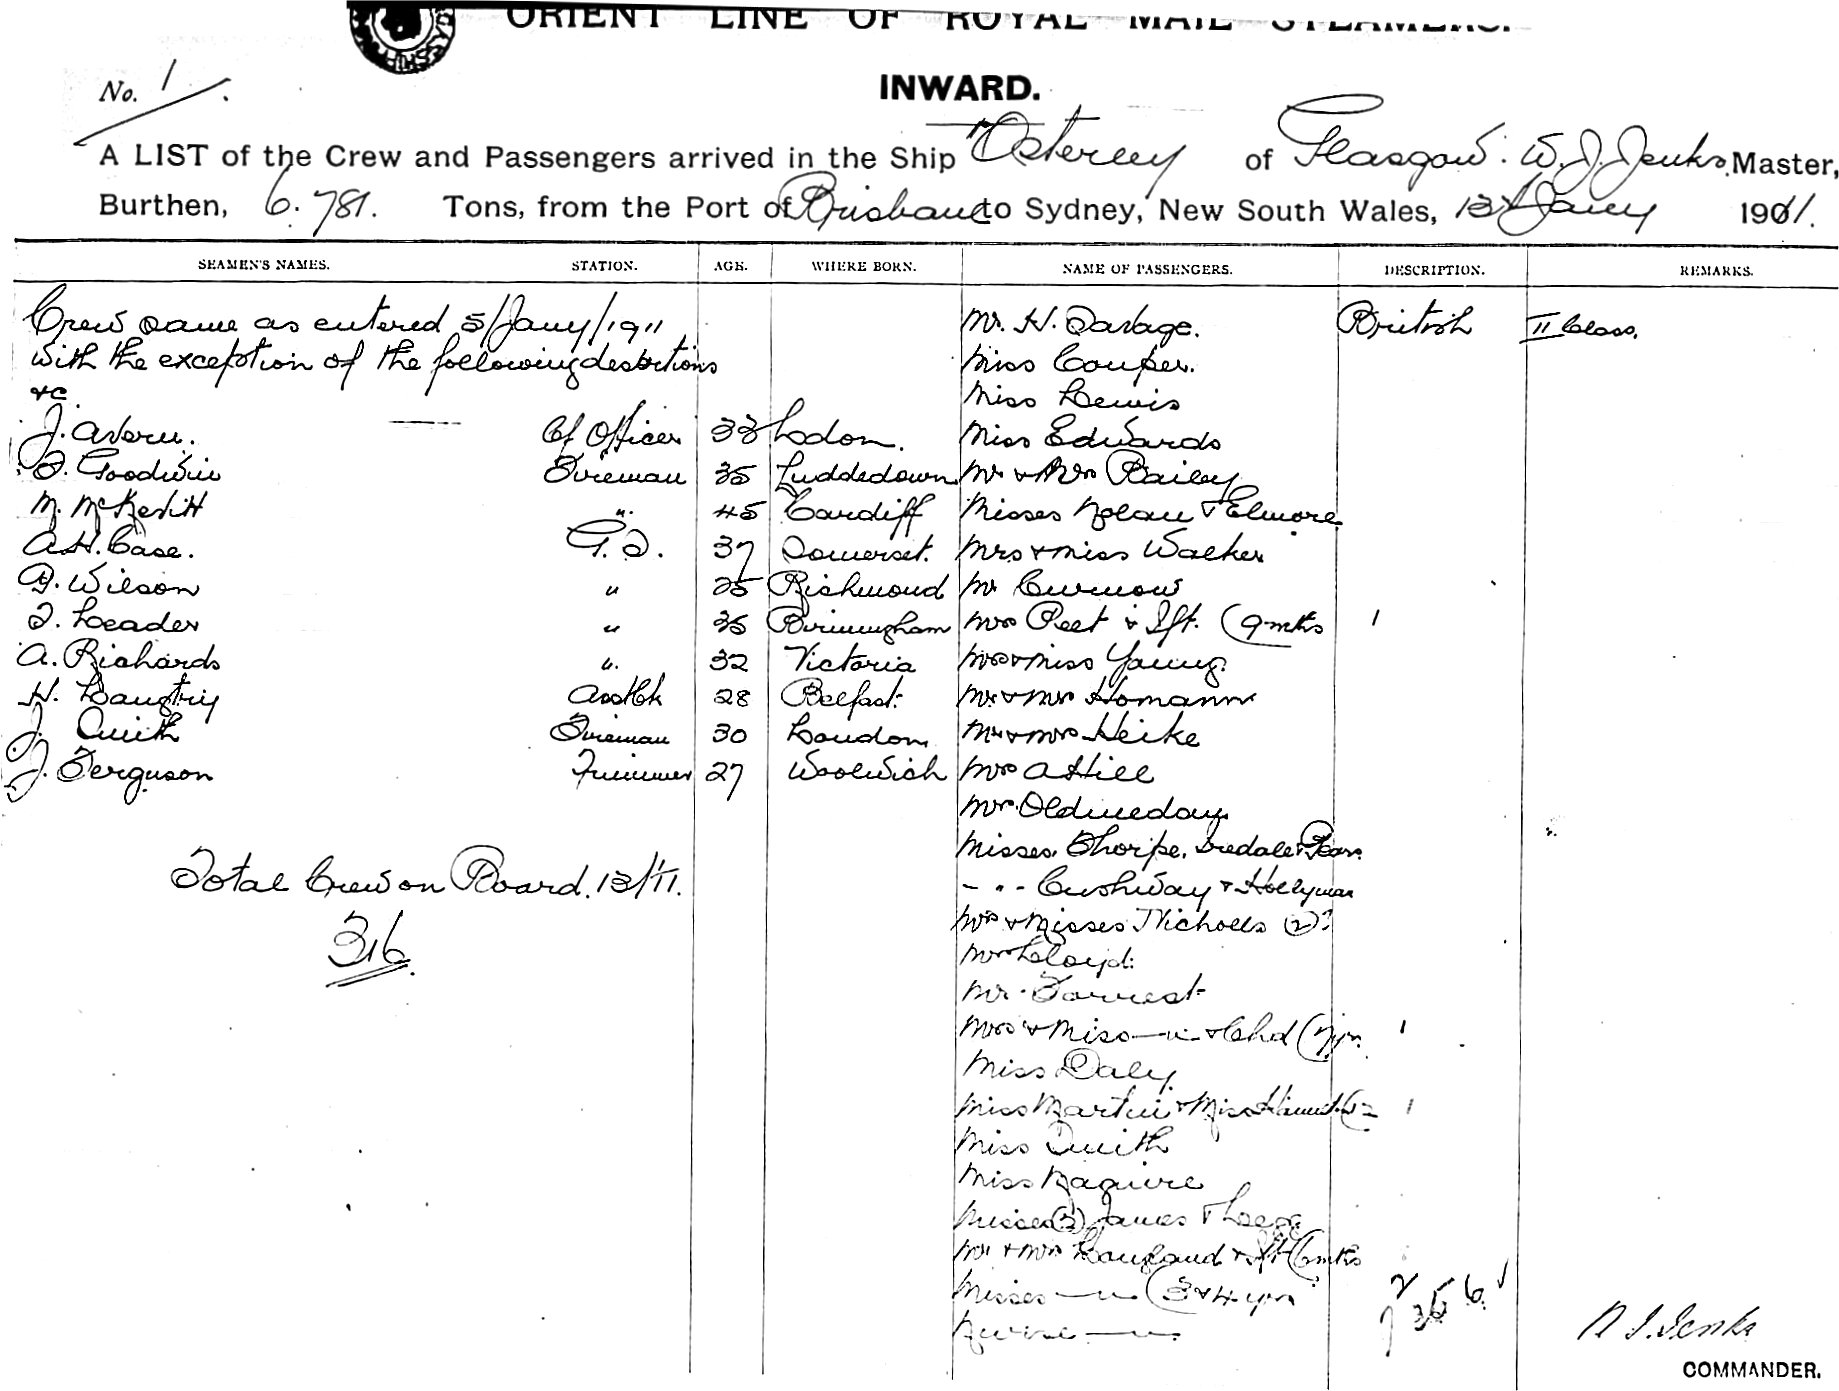 ORIENT LINE OF ROYAL MAIL STEAMERS.
No. 1
INWARD.
A LIST of the Crew and Passengers arrived in the Ship "Osterley of Glasgow. W. J. Jenks Master,
Burthen, 6.781. Tons, from the Port of Brisbane to Sydney, New South Wales, 13th Jany 1911.
SEAMEN'S NAMES. STATION. AGE. WHERE BORN. NAME OF PASSENGERS. DESCRIPTION. REMARKS.
Crew same as entered 5/Jany/1911 Mr. H. Savage. British II Class.
with the exception of the following desertions Miss Couper.
&c. Miss Lewis
J. Avern. Cf Officer 33 Lodon. Miss Edwards
Goodwin Fireman 35 Luddedown Mr & Mrs Bailey
M. McKevitt " 45 Cardiff Misses Nolan & Elmore
A.H. Case. G.S. 37 Somerset. Mrs & Miss Walker
Wilson " 25 Richmond Mr Curnow
Leader " 36 Birmingham Mrs Peet & Ift. (9 mths 1
A. Richards " 32 Victoria Mrs & Miss Young.
H. Langtry Asst Ck 28 Belfast. Mr & Mrs Homann
J. Smith Fireman 30 London Mr & Mrs Heike
J. Ferguson Trimmer 27 Woolwich Mrs A Hill
Misses. Thorpe. Iredale &
Total Crew on Board. 13/1/11. - " - Cushway & Hollyman
316. Mrs & Misses Nicholls (2)
Mrs Lloyd.
Mr. Forrest
Mrs & Miss — " — & Chd (7 yrs. 1
Miss Daly
Miss Martin & Miss 1
Miss Smith
Miss Maguire
Misses (2) James &
Mr & Mrs Langland & Ift (6 mths
Misses — " — (3 & 4 yrs
Nurse — " —
Jenks
COMMANDER.